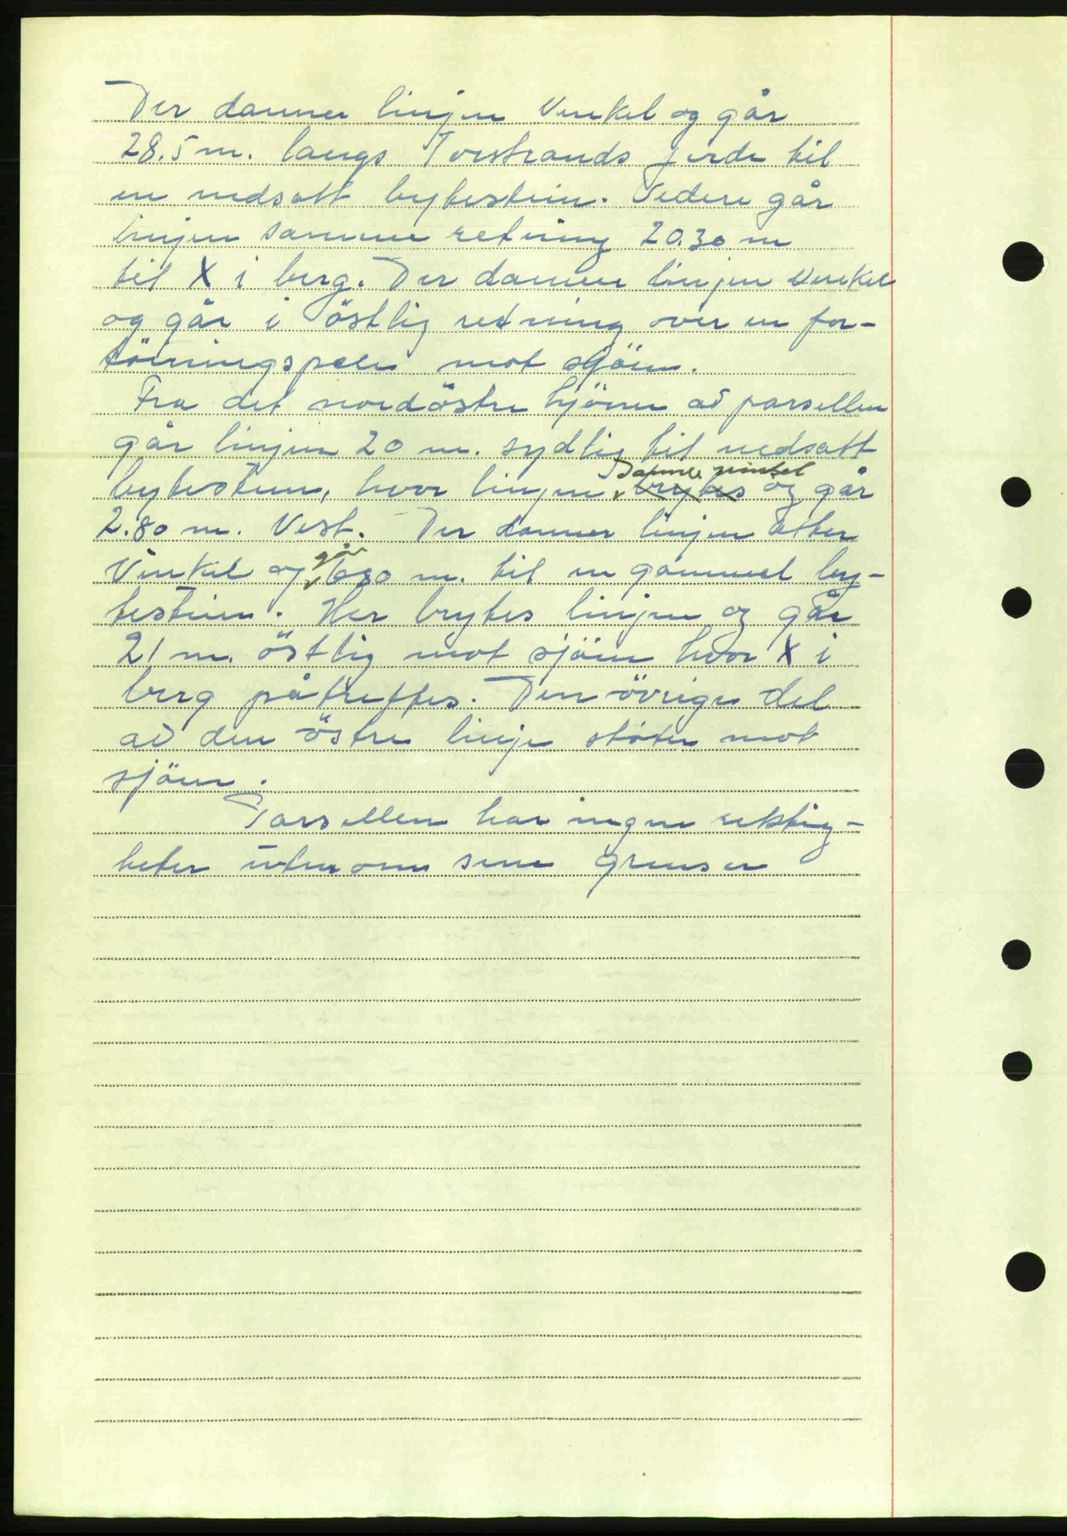 Der danner linjen Vinkel og går
28.5 m. langs Torstrands jorde til
en nedsatt bytestein. Videre går
linjen samme retning 20.30 m
til X i berg. Der danner linjen Vinkel
og går i östlig retning over en for-
töiningspæle mot sjöen.
Fra det nordöstre hjörne av parsellen
går linjen 20 m. sydlig til nedsatt
danner vinkel
bytestein, hvor linjen brytes og går
2.80 m. Vest. Der danner linjen atter
går
Vinkel og 680 m. til en gammel by-
testein. Her brytes linjen og går
21 m. östlig mot sjöen hvor X i
berg påtreffes. Den övrige del
av den östre linje støter mot
sjöen.
Parsellen har ingen rettig-
heter utenom sine grenser